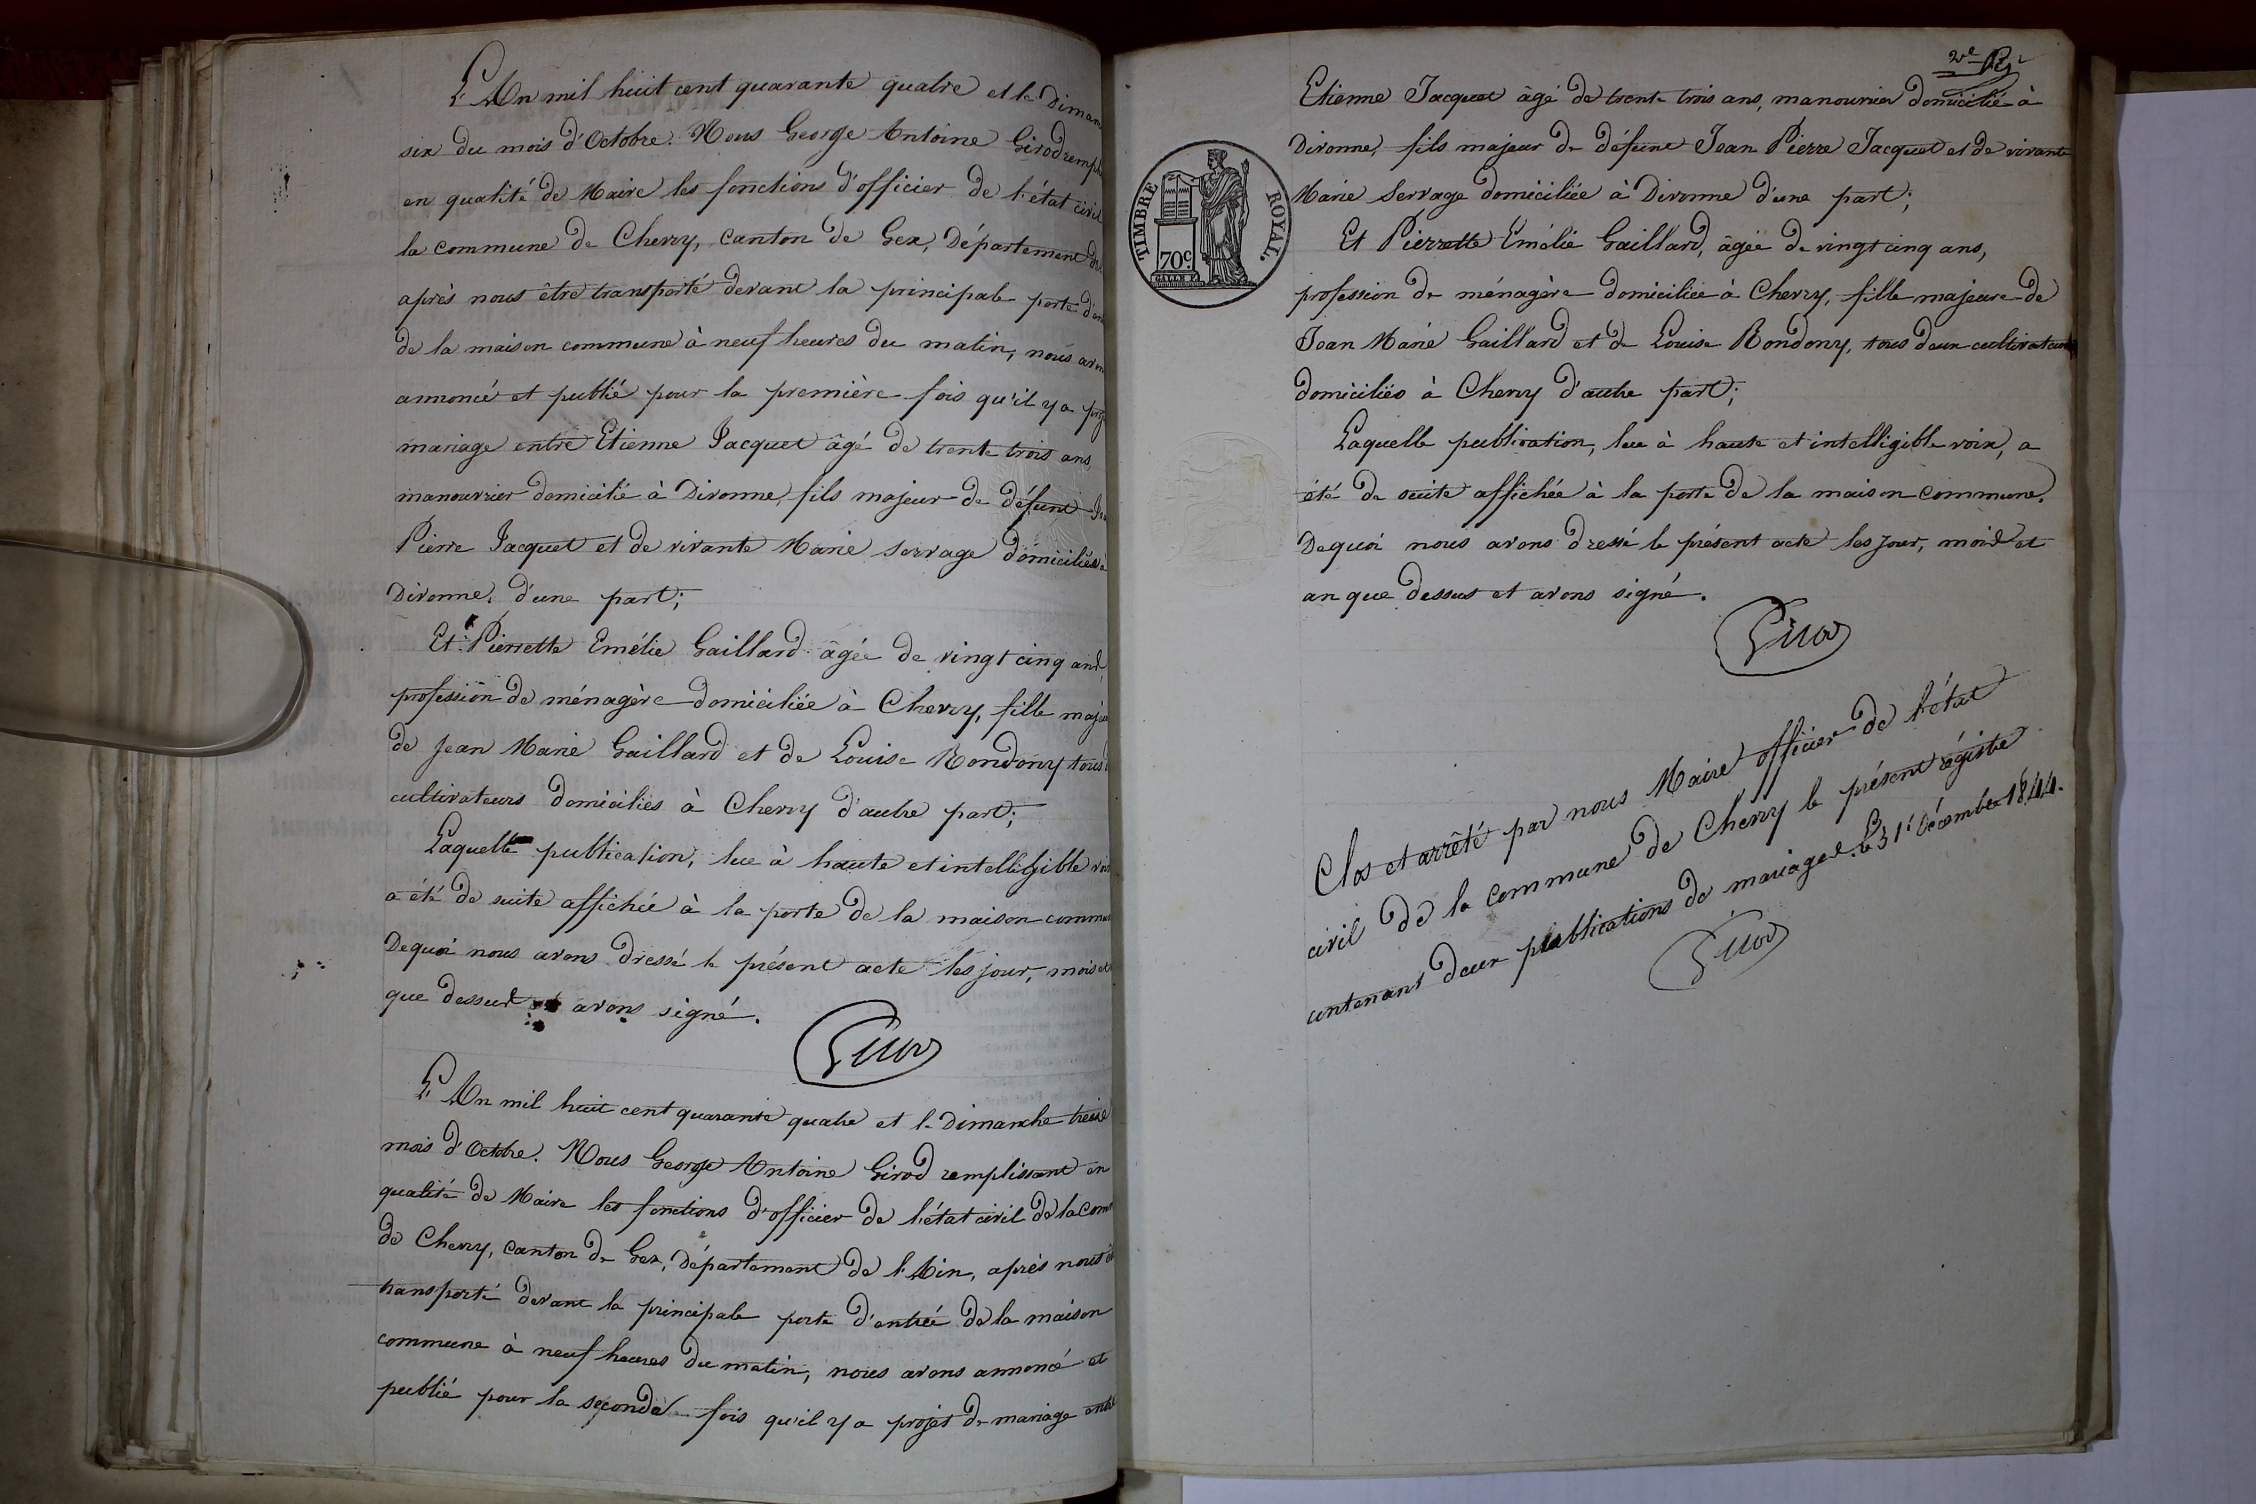 L'An mil huit cent quarante quatre et le Diman
six du mois d'Octobre. Nous George Antoine Girod rempli
en qualité de Maire les fonctions d'officier de l'état civil
la commune de Chevry, canton de Gex, Département de
après nous être transporté devant la principale porte d'en
de la maison commune à neuf heures du matin, nous avon
annoncé et publié pour la première fois qu'il y a proj
mariage entre Etienne Jacquet âgé de trente trois ans
manouvrier domicilié à Divonne, fils majeur de défunt Jea
Pierre Jacquet et de vivante Marie Servage domiciliés à
Divonne, d'une part;
Et Pierrette Emélie Gaillard âgée de vingt cinq ans,
profession de ménagère domiciliée à Chevry, fille majeu
de Jean Marie Gaillard et de Louise Rondony tous
cultivateurs domiciliés à Chevry d'autre part;
Laquelle publication, lue à haute et intelligible voix
a été de suite affichée à la porte de la maison commu
Dequoi nous avons dressé le présent acte les jour, mois et
que dessus et avons signé.
Girod
L'An mil huit cent quarante quatre et le Dimanche treize
mois d'Octobre. Nous George Antoine Girod remplissant en
qualité de Maire les fonctions d'officier de l'état civil de la com
de Chevry, canton de Gex, Département de l'Ain, après nous êt
transporté devant la principale porte d'entrée de la maison
commune à neuf heures du matin, nous avons annoncé et
publié pour la seconde fois qu'il y a projet de mariage entre
TIMBRE ROYAL.
70c.
Etienne Jacquet âgé de trente trois ans, manouvrier domicilié à
Divonne, fils majeur de défunt Jean Pierre Jacquet et de vivante
Marie Servage domiciliée à Divonne d'une part;
Et Pierrette Emélie Gaillard, âgée de vingt cinq ans,
profession de ménagère domiciliée à Chevry, fille majeure de
Jean Marie Gaillard et de Louise Rondony, tous deux cultivateurs
domiciliés à Chevry d'autre part;
Laquelle publication, lue à haute et intelligible voix, a
été de suite affichée à la porte de la maison commune.
Dequoi nous avons dressé le présent acte les jour, mois et
an que dessus et avons signé.
Girod
Clos et arrêté par nous Maire officier de l'état
civil de la commune de Chevry le présent régistre
contenant deux publications de mariages. Le 31 Décembre 1844.
Girod